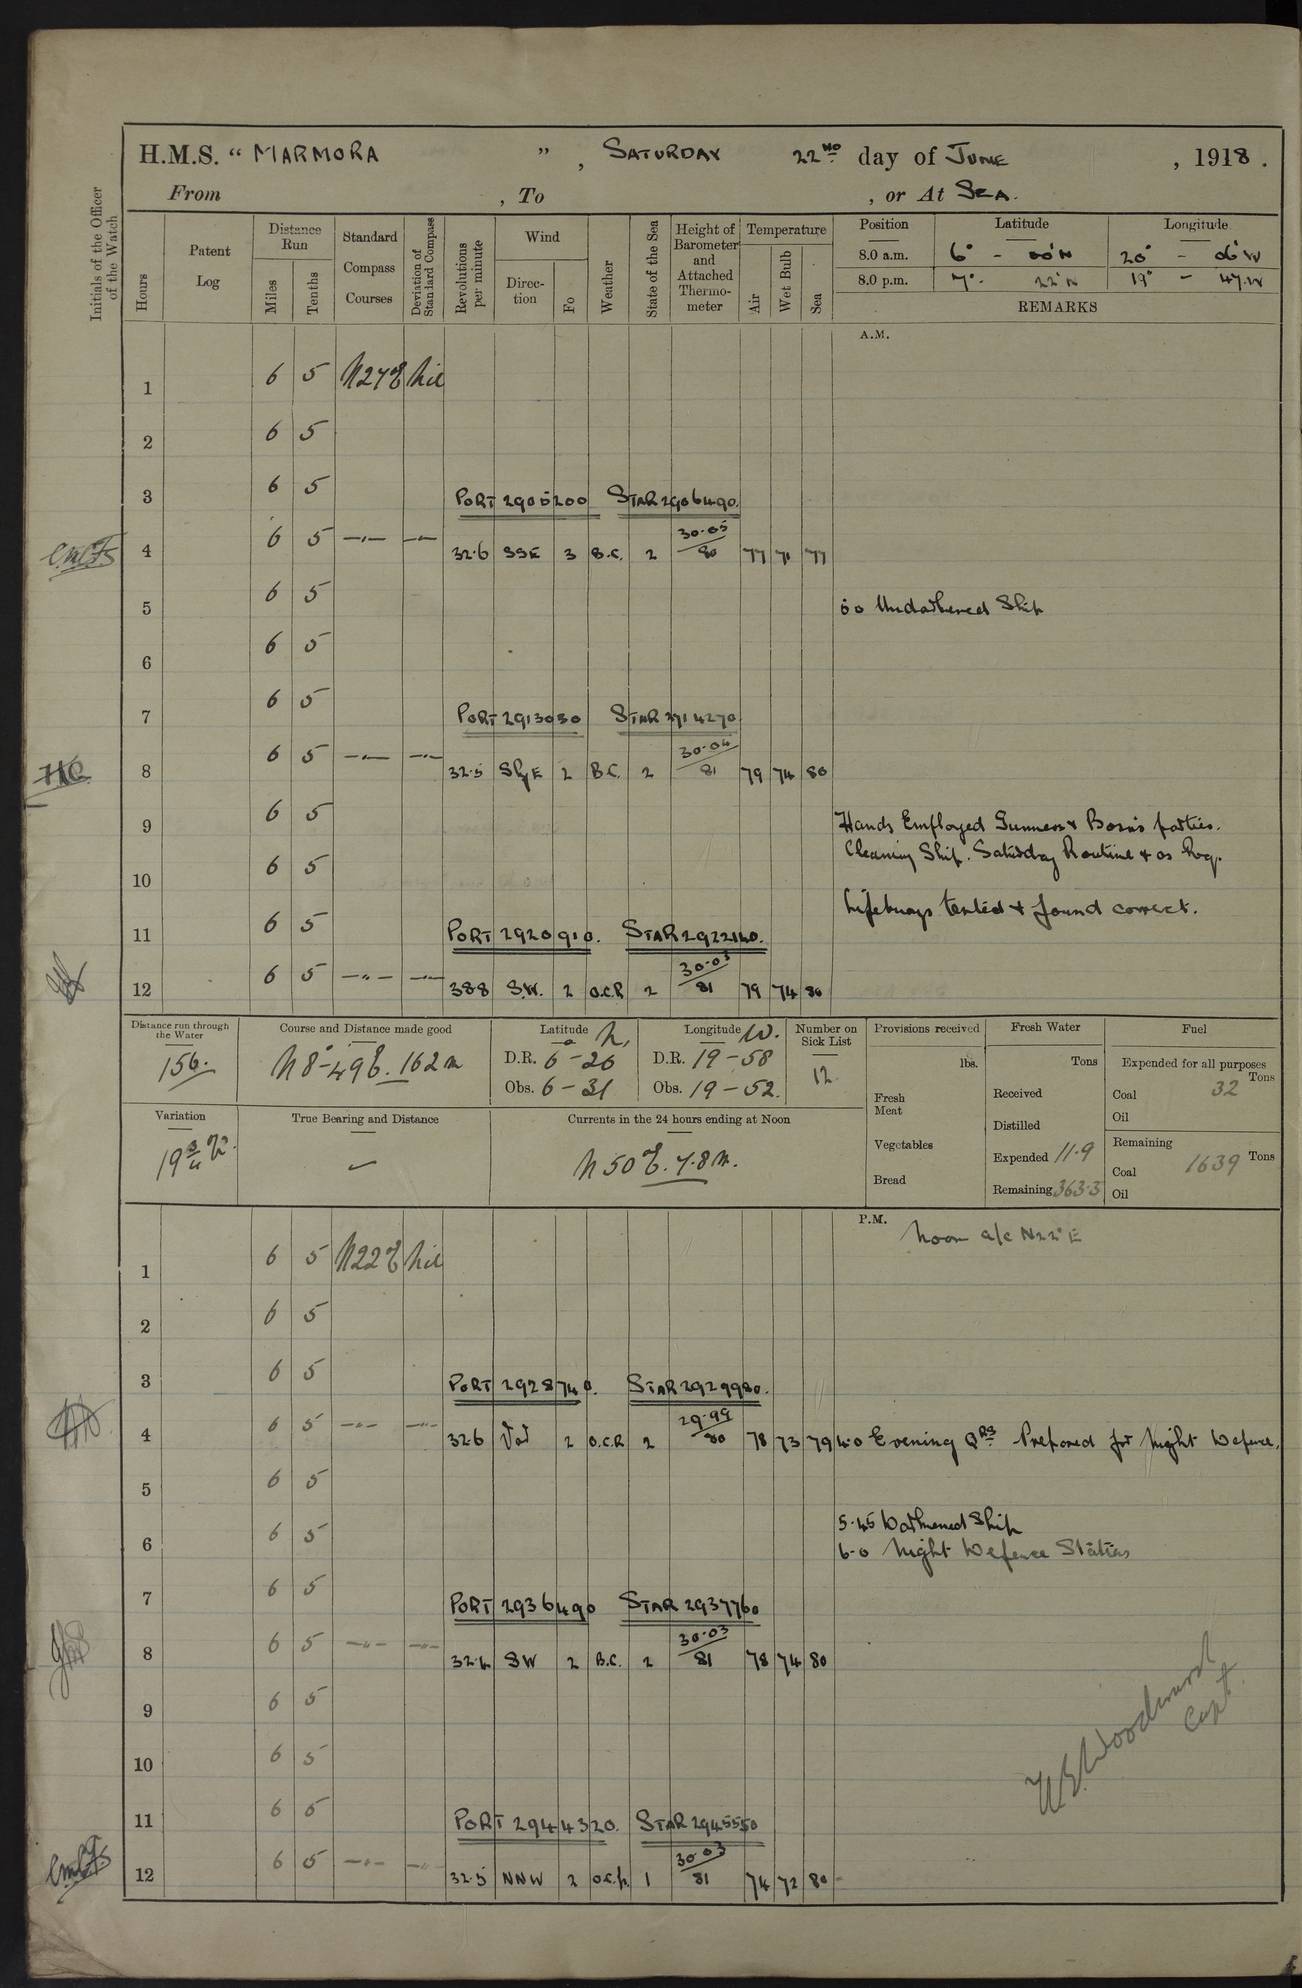 H.M.S. " MARMORA " , SATURDAY 22ND day of JUNE , 1918 .
From , To , or At SEA.
Initials of the Officer of the Watch
Hours
Patent Log
Distance Run
Miles
Tenths
Standard Compass Courses
Deviation of Standard Compass
Revolutions per minute
Wind
Direction
Fo
Weather
State of the Sea
Height of Barometer and Attached Thermometer
Temperature
Air
Wet Bulb
Sea
Position Latitude Longitude
8.0 a.m. 6° - 00'N 20° - 06'W
8.0 p.m. 7° - 22'N 19° - 47'W
REMARKS
A.M.
1 6 5 N27E Nil
2 6 5
3 6 5 PORT 2905200 STAR 2906490.
4 6 5 —"— —"— 32.6 SSE 3 B.C. 2 30.05/80 77 71 77
5 6 5 5.0 Undarkened Ship
6 6 5
7 6 5 PORT 2913030 STAR 2914270
8 6 5 —"— —"— 32.5 SbyE 2 B.C. 2 30.04/81 79 74 80
9 6 5 Hands Employed Gunners & Bosns parties.
Cleaning Ship. Saturday Routine & as Req.
10 6 5
Lifebuoys tested & found correct.
11 6 5 PORT 2920910. STAR 2922140.
12 6 5 —"— —"— 38.8 S.W. 2 O.C.R 2 30.03/81 79 74 80
Distance run through the Water
156.
Course and Distance made good
N 8°-49 E. 162 m
Latitude N.
D.R. 6-26
Obs. 6-31
Longitude W.
D.R. 19-58
Obs. 19-52.
Number on Sick List
12
Provisions received
lbs.
Fresh Meat
Vegetables
Bread
Fresh Water
Tons
Received
Distilled
Expended 11.9
Remaining 363.5
Fuel
Expended for all purposes
Tons
Coal 32
Oil
Remaining
Coal 1639 Tons
Oil
Variation
19 3/4 W.
True Bearing and Distance
Currents in the 24 hours ending at Noon
N 50 E. 7.8 m.
P.M.
Noon a/c N22°E
1 6 5 N22E Nil
2 6 5
3 6 5 PORT 2928740. STAR 2929980.
4 6 5 —"— —"— 32.6 Var 2 O.C.R 2 29.99/80 78 73 79 4.0 Evening Qrs Prepared for Night Defence.
5 6 5
5.45 Darkened Ship
6 6 5 6.0 Night Defence Stations
7 6 5 PORT 2936490 STAR 2937760
8 6 5 —"— —"— 32.4 SW 2 B.C. 2 30.03/81 78 74 80
9 6 5
10 6 5
W.E. Woodward
Capt.
11 6 5 PORT 2944320. STAR 2945550
12 6 5 —"— —"— 32.5 NNW 2 O.C.p. 1 30.03/81 74 72 80